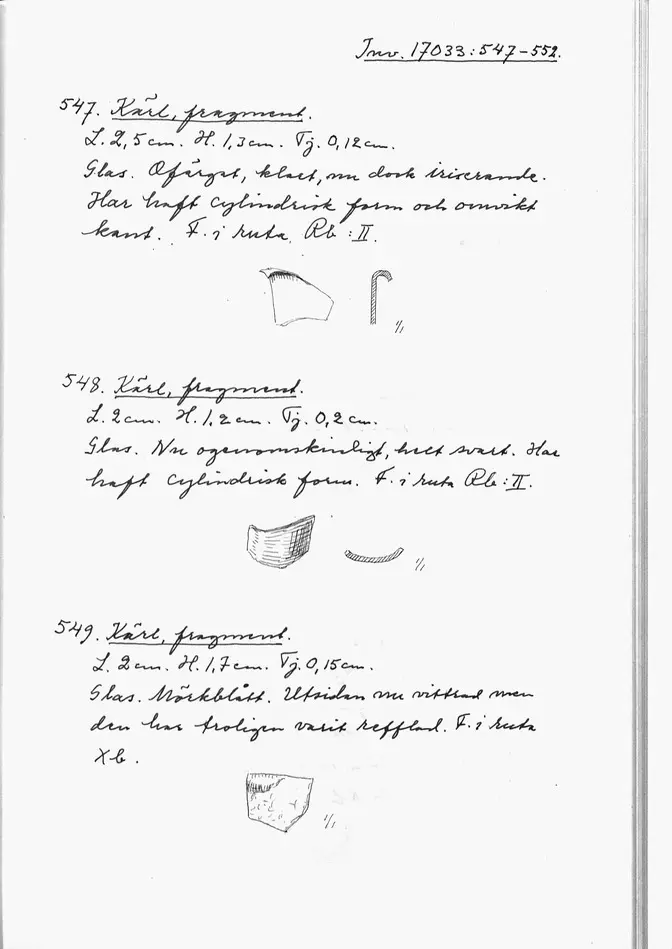 Inv. 17033:547-552.
547. Kärl, fragment.
L. 2,5 cm. H. 1,3 cm. Tj. 0,12 cm.
Glas. Ofärgat, klart, nu dock iriserande.
Har haft cylindrisk form och omvikt
kant. F. i ruta Rb:II.
1/1
548. Kärl, fragment.
L. 2 cm. H. 1,2 cm. Tj. 0,2 cm.
Glas. Nu ogenomskinligt, helt svart. Har
haft cylindrisk form. F. i ruta Rb:II.
1/1
549. Kärl, fragment.
L. 2 cm. H. 1,7 cm. Tj. 0,15 cm.
Glas. Mörkblått. Utsidan nu vittrad men
den har troligen varit refflad. F. i ruta
Xb.
1/1